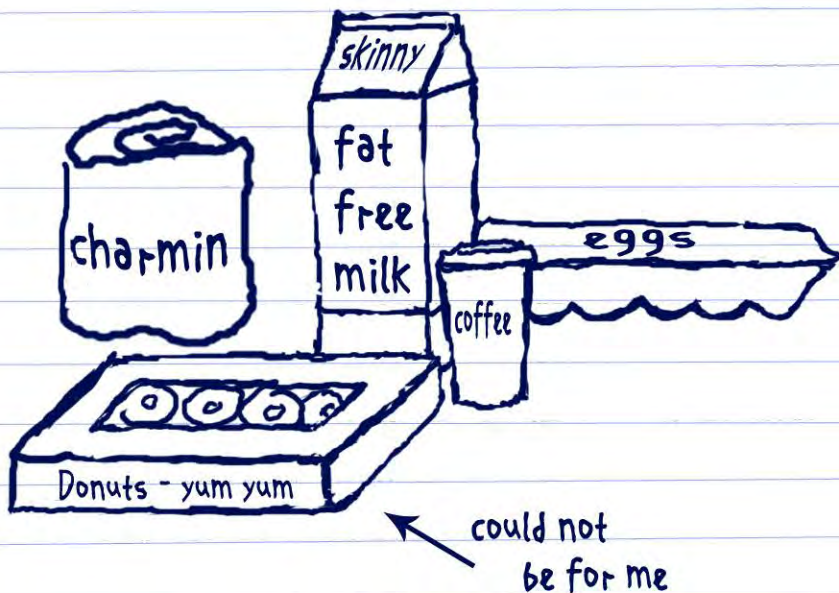 skinny
fat
free
milk
charmin
eggs
coffee
Donuts - yum yum
could not
be for me